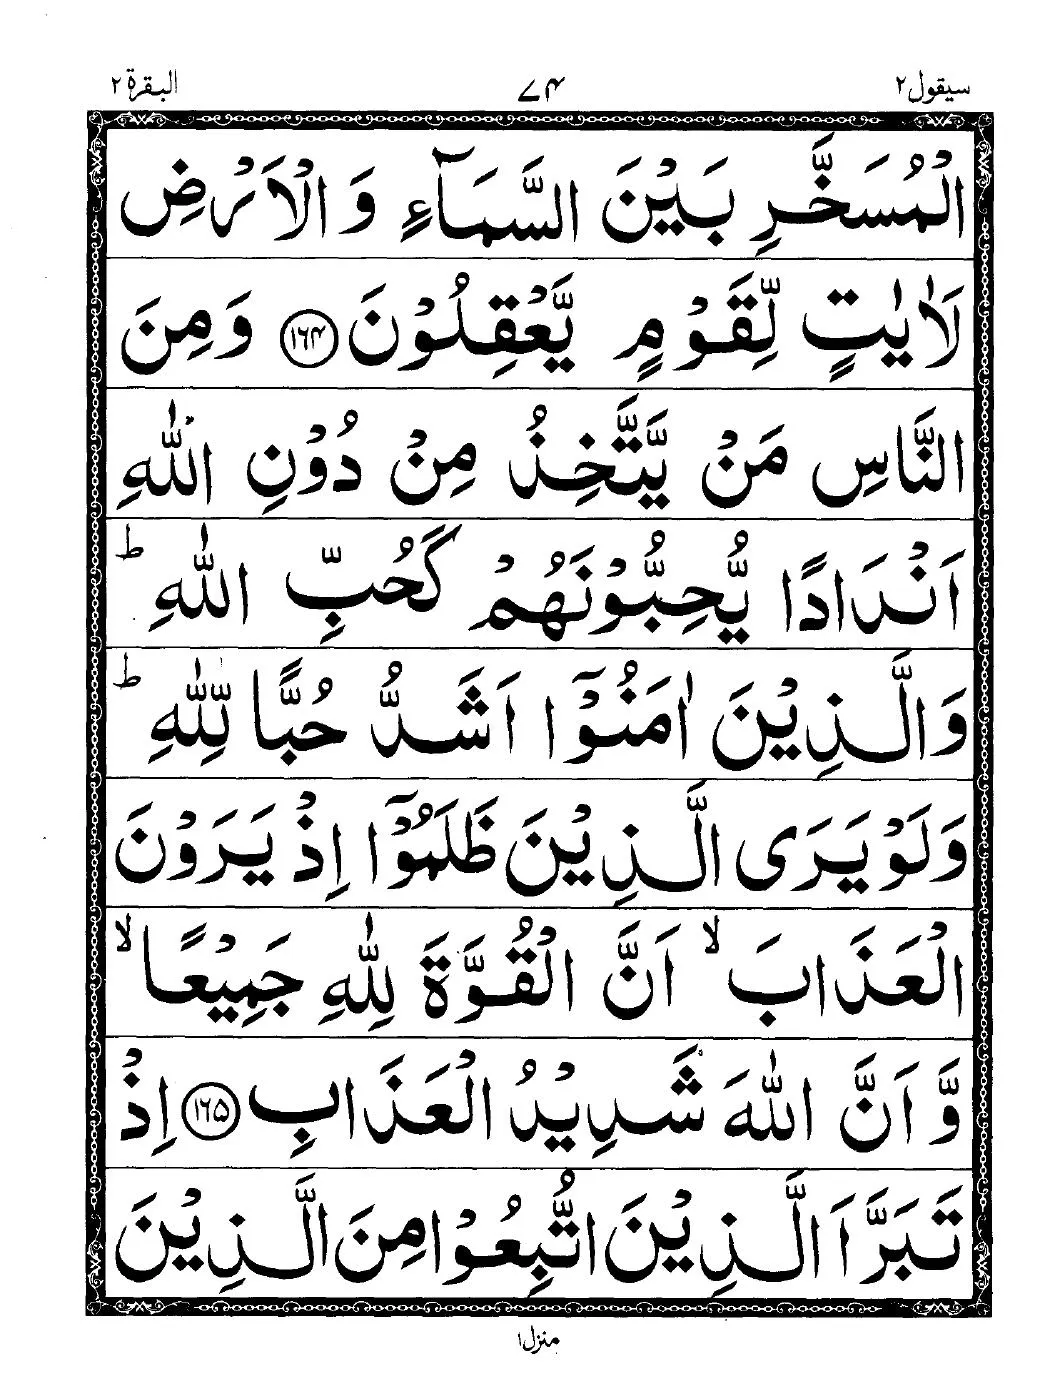 سيقول ٢ ٧۴ البقرة ٢
الْمُسَخَّرِ بَيْنَ السَّمَآءِ وَالْاَرْضِ
لَاٰيٰتٍ لِّقَوْمٍ يَّعْقِلُوْنَ ﴿١٦۴﴾ وَمِنَ
النَّاسِ مَنْ يَّتَّخِذُ مِنْ دُوْنِ اللّٰهِ
اَنْدَادًا يُّحِبُّوْنَهُمْ كَحُبِّ اللّٰهِ ؕ
وَالَّذِيْنَ اٰمَنُوْٓا اَشَدُّ حُبًّا لِّلّٰهِ ؕ
وَلَوْ يَرَى الَّذِيْنَ ظَلَمُوْٓا اِذْ يَرَوْنَ
الْعَذَابَ ۙ اَنَّ الْقُوَّةَ لِلّٰهِ جَمِيْعًا ۙ
وَّاَنَّ اللّٰهَ شَدِيْدُ الْعَذَابِ ﴿١٦۵﴾ اِذْ
تَبَرَّاَ الَّذِيْنَ اتُّبِعُوْا مِنَ الَّذِيْنَ
منزل ١